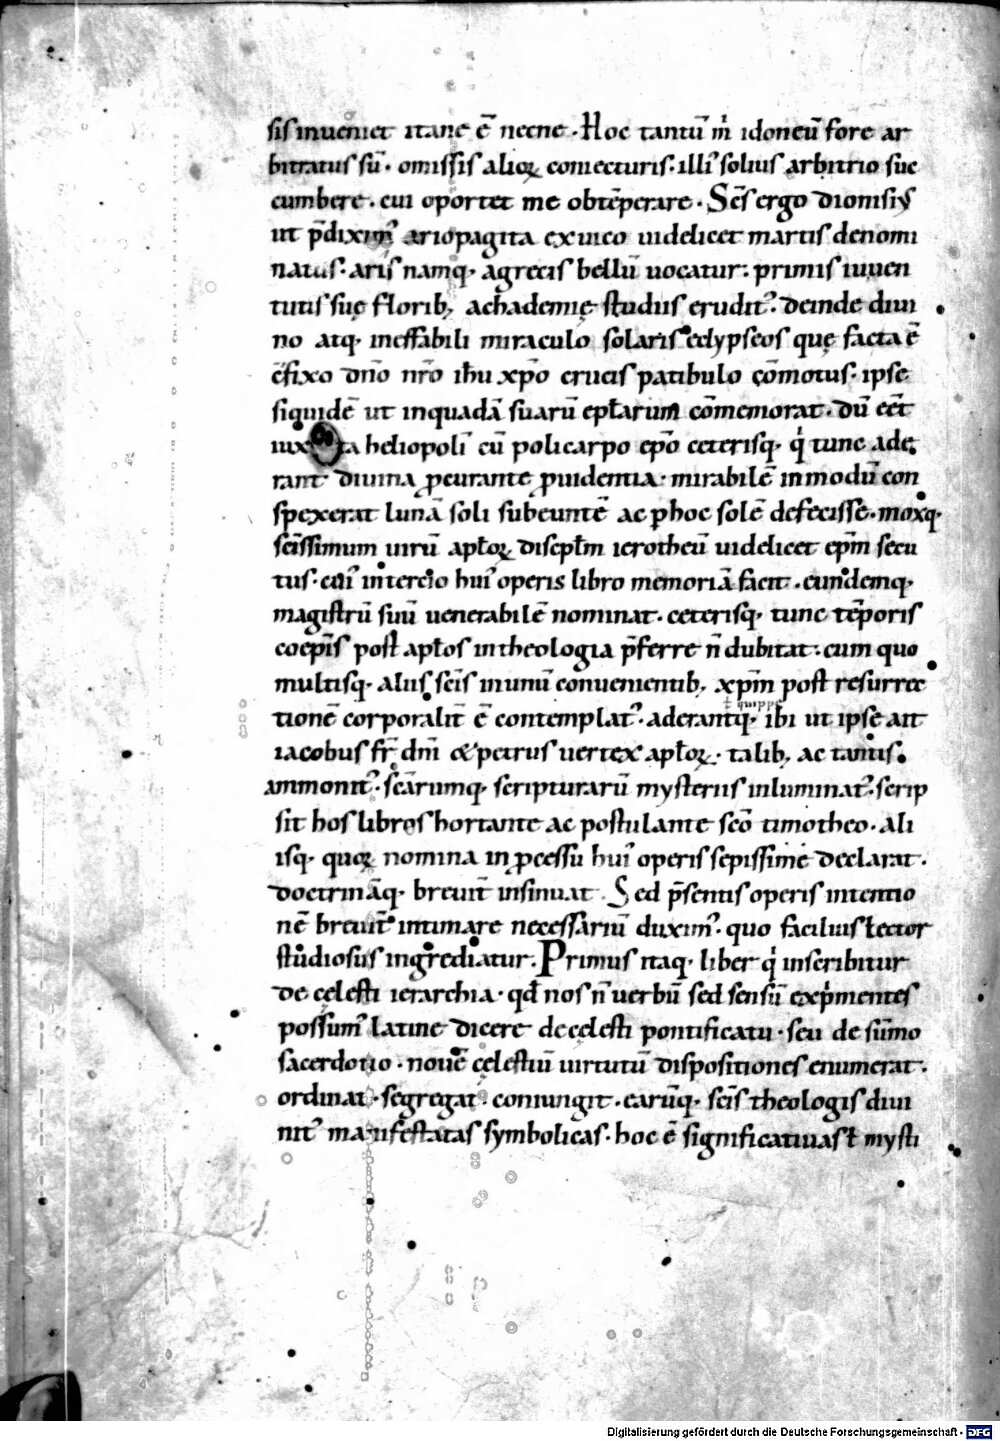 sis inueniet itane ē necne · Hoc tantū m̍ idoneū fore ar
bitratus sū · omissis alioꝝ coniecturis · illi᾽ solius arbitrio suc
cumbere · cui oportet me obtēperare · Sc̄s ergo dionisiꝰ
ut p̄diximꝰ ariopagita ex uico uidelicet martis denomi
natus · aris namq· a grecis bellū uocatur · primis iuuen
tutis suę florib; achademię studiis eruditꝰ · deinde diui
no atq· ineffabili miraculo solaris eclypseos quę facta ē
c̄fixo dn̄o nr̄o ihu xp̄o crucis patibulo cōmotus · ipse
siquidē ut in quadā suarū epl̄arum cōmemorat · dū eēt
iuxta heliopolī cū policarpo ep̄o ceterisq· q̍ tunc ade
rant diuina ꝓcurante ꝓuidentia · mirabilē in modū con
spexerat lunā soli subeuntē ac p̲ hoc solē defecisse · moxq·
sc̄issimum uirū apl̄oꝝ discipl̄m ierotheū uidelicet ep̄m secu
tus · cuiꝰ in tercio huiꝰ operis libro memoriā facit · eundemq·
magistrū suū uenerabilē nominat · ceterisq· tunc tēporis
coep̄is post apl̄os in theologia p̄ferre n̄ dubitat · cum quo
multisq· aliis sc̄is in unū conuenientib; xp̄m post resurrec
tionē corporalit̄ ē contemplatꝰ · aderantq· ibi ut ipse ait
ł quippe
iacobus fr̄ dn̄i & petrus uertex apl̄oꝝ · talib; ac tantis
ammonitꝰ · sc̄arumq· scripturarū mysteriis inluminatꝰ · scrip
sit hos libros hortante ac postulante sc̄o timotheo · ali
isq· quoꝝ nomina in ꝓcessu huiꝰ operis sepissime declarat ·
doctrināq· breuit̄ insinuat · Sed p̄sentis operis intentio
nē breuit̄ intimare necessariū duximꝰ · quo facilius lector
studiosus ingrediatur · Primus itaq· liber q̍ inscribitur
de cęlesti ierarchia · qđ nos n̄ uerbū sed sensū exp̍mentes
possumꝰ latine dicere de cęlesti pontificatu · seu de sūmo
sacerdotio · nouē cęlestiū uirtutū dispositiones enumerat ·
ordinat · segregat · coniungit · earūq· sc̄is theologis diui
nitꝰ manifestatas symbolicas · hoc ē significatiuas ł mysti
Digitalisierung gefördert durch die Deutsche Forschungsgemeinschaft - DFG